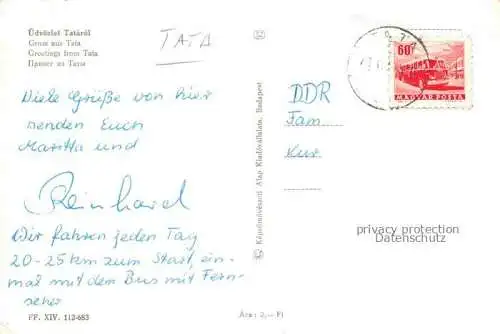 Üdvözlet Tatáról
Gruss aus Tata
Greetings from Tata
Привет из Таты
TATA
Viele Grüße von hier
senden Euch
Maritta und
Reinhard
Wir fahren jeden Tag
20-25 km zum Start, ein-
mal mit dem Bus mit Fern-
seher
FF. XIV. 112-683
Ára: 2,— Ft
Képzőművészeti Alap Kiadóvállalata, Budapest
60f
MAGYAR POSTA
DDR
Fam
Kur
privacy protection
Datenschutz